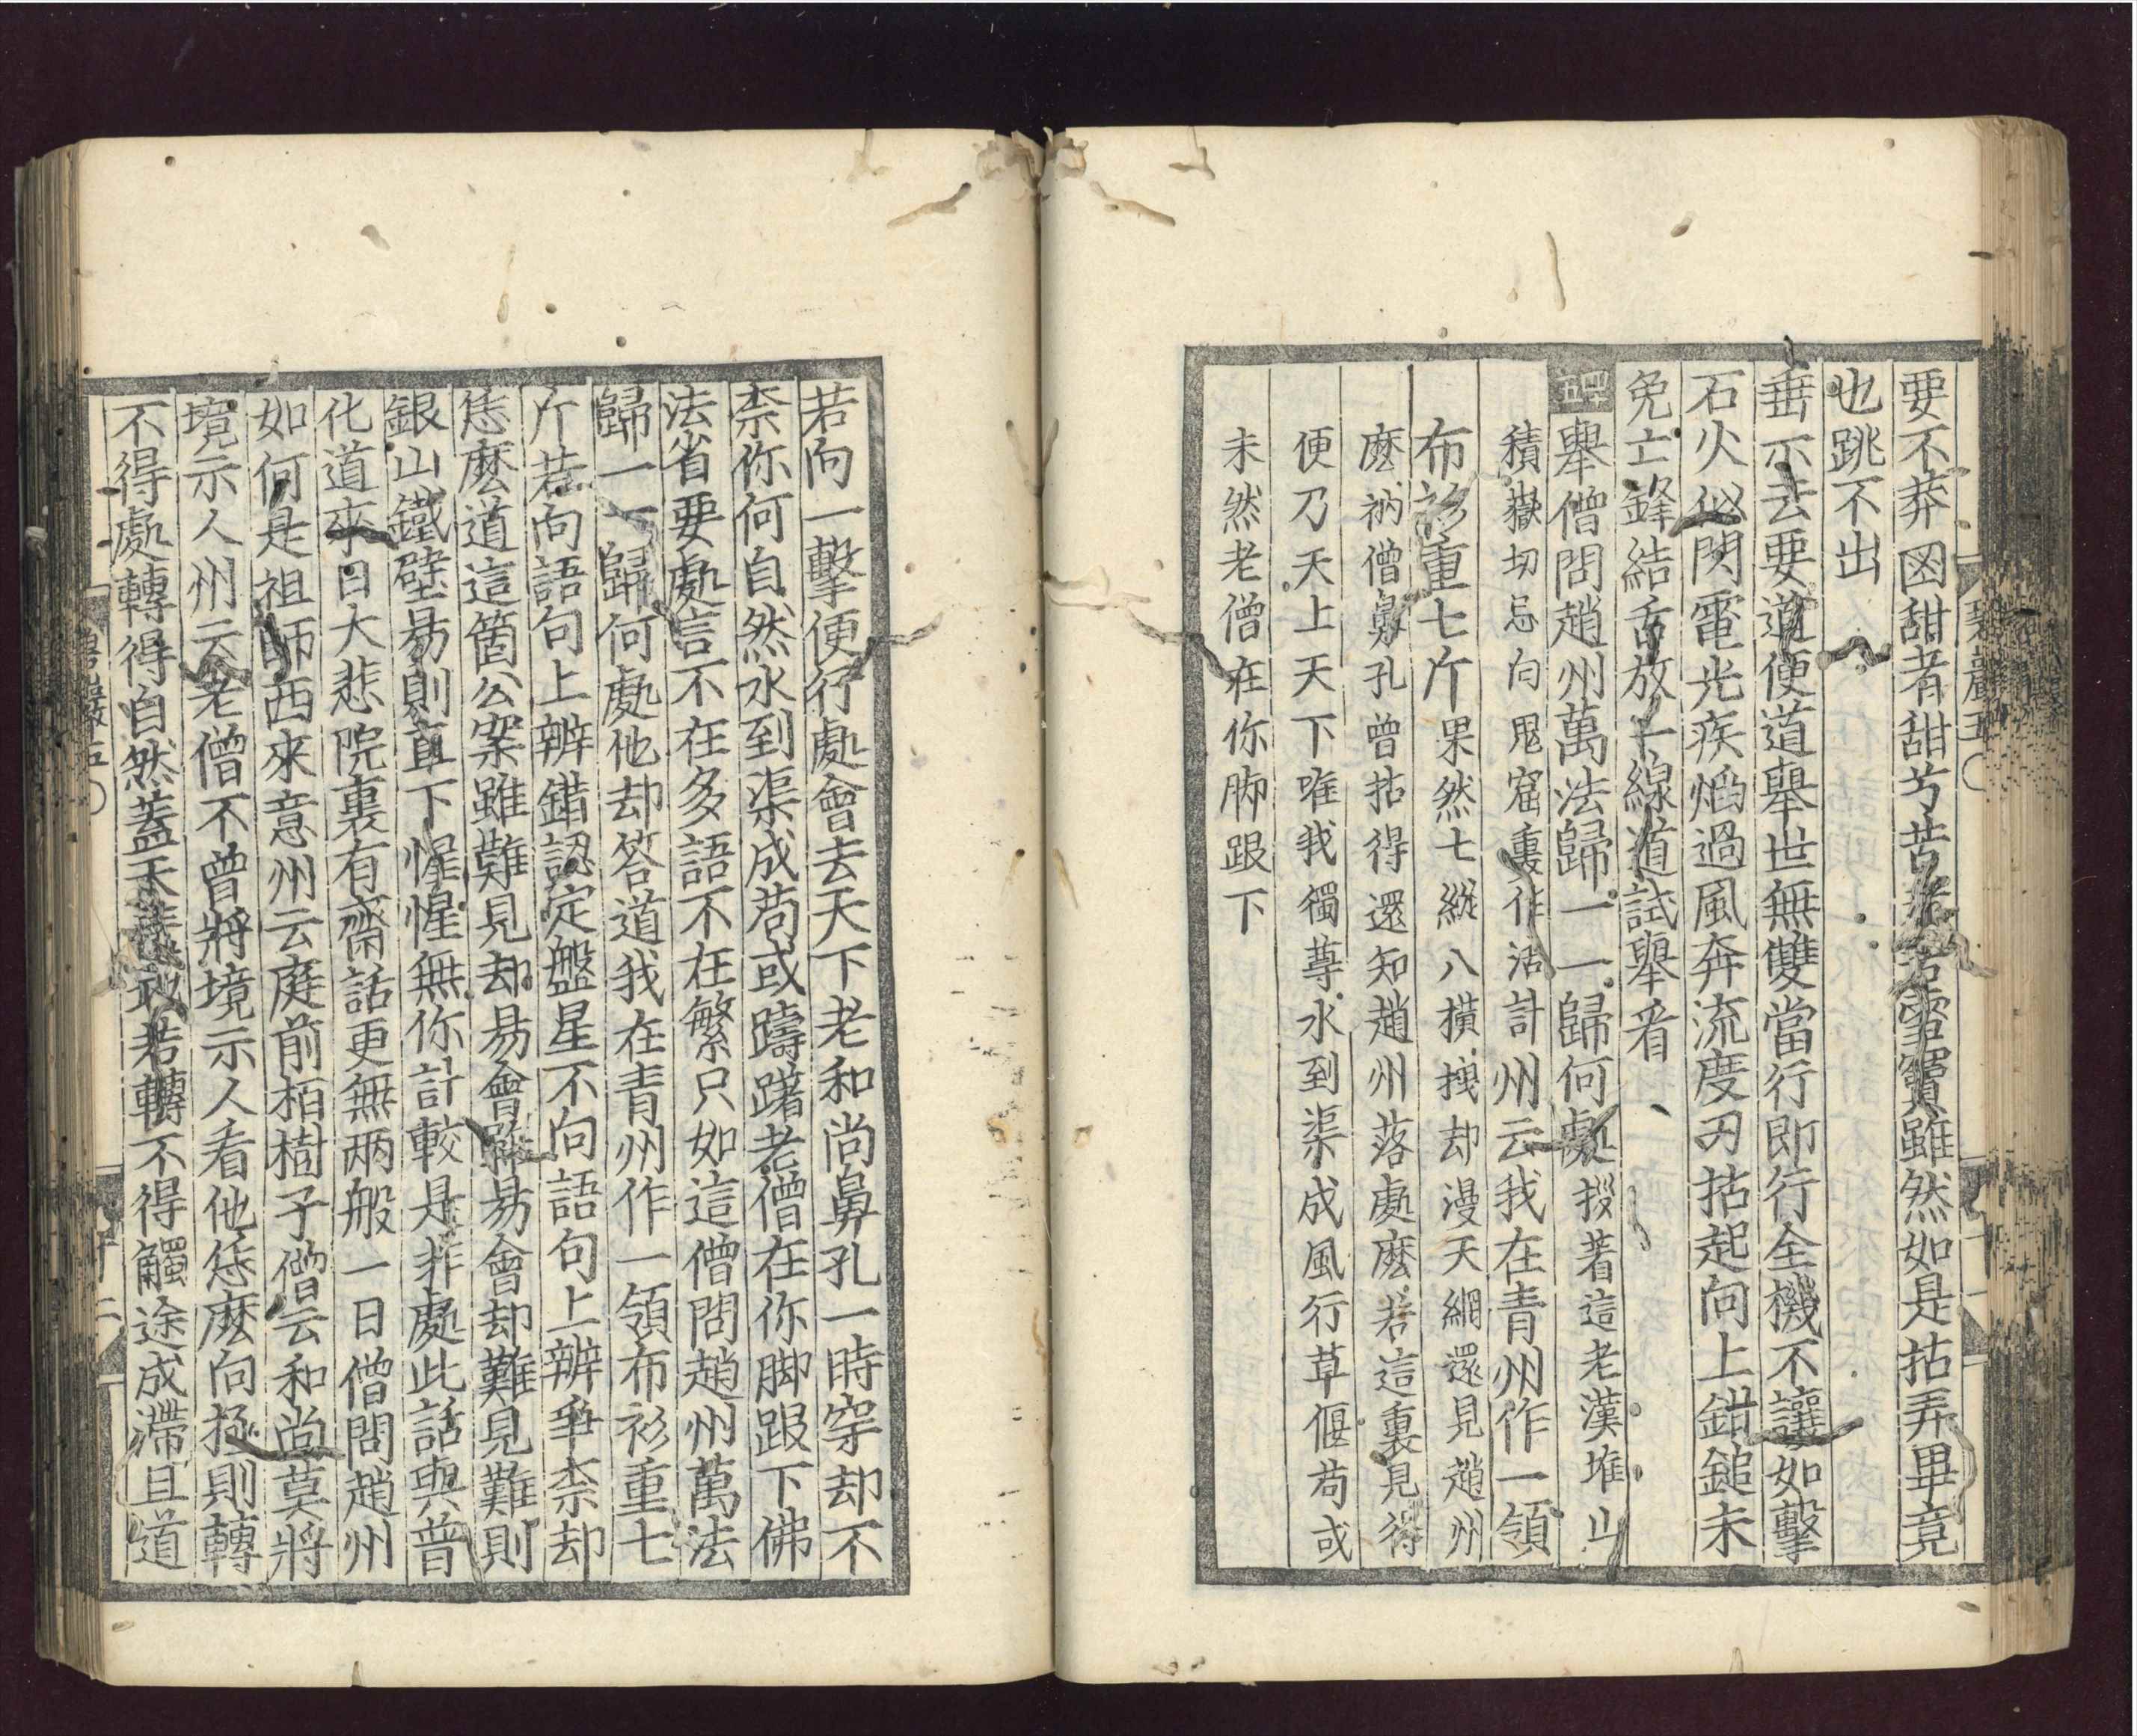 要不莽鹵甜者甜兮苦者苦雪竇雖然如是拈弄畢竟
也跳不出
垂示云要道便道舉世無雙當行即行全機不讓如擊
石火似閃電光疾熖過風奔流度刃拈起向上鉗鎚未
免亡鋒結舌放一線道試舉看
四五
舉僧問趙州萬法歸一一歸何處拶著這老漢堆山
積嶽切忌向鬼窟裏作活計州云我在青州作一領
布衫重七斤果然七縱八橫拽却漫天網還見趙州
麽衲僧鼻孔曾拈得還知趙州落處麽若這裏見得
便乃天上天下唯我獨尊水到渠成風行草偃苟或
未然老僧在你脚跟下
碧巖五〇
若向一擊便行處會去天下老和尚鼻孔一時穿却不
柰你何自然水到渠成苟或躊躇老僧在你脚跟下佛
法省要處言不在多語不在繁只如這僧問趙州萬法
歸一一歸何處他却答道我在青州作一領布衫重七
斤若向語句上辨錯認定盤星不向語句上辨爭柰却
恁麽道這箇公案雖難見却易會雖易會却難見難則
銀山鐵壁易則直下惺惺無你計較是非處此話與普
化道來日大悲院裏有齋話更無兩般一日僧問趙州
如何是祖師西來意州云庭前栢樹子僧云和尚莫將
境示人州云老僧不曾將境示人看他恁麽向極則轉
不得處轉得自然蓋天蓋地若轉不得觸途成滯且道